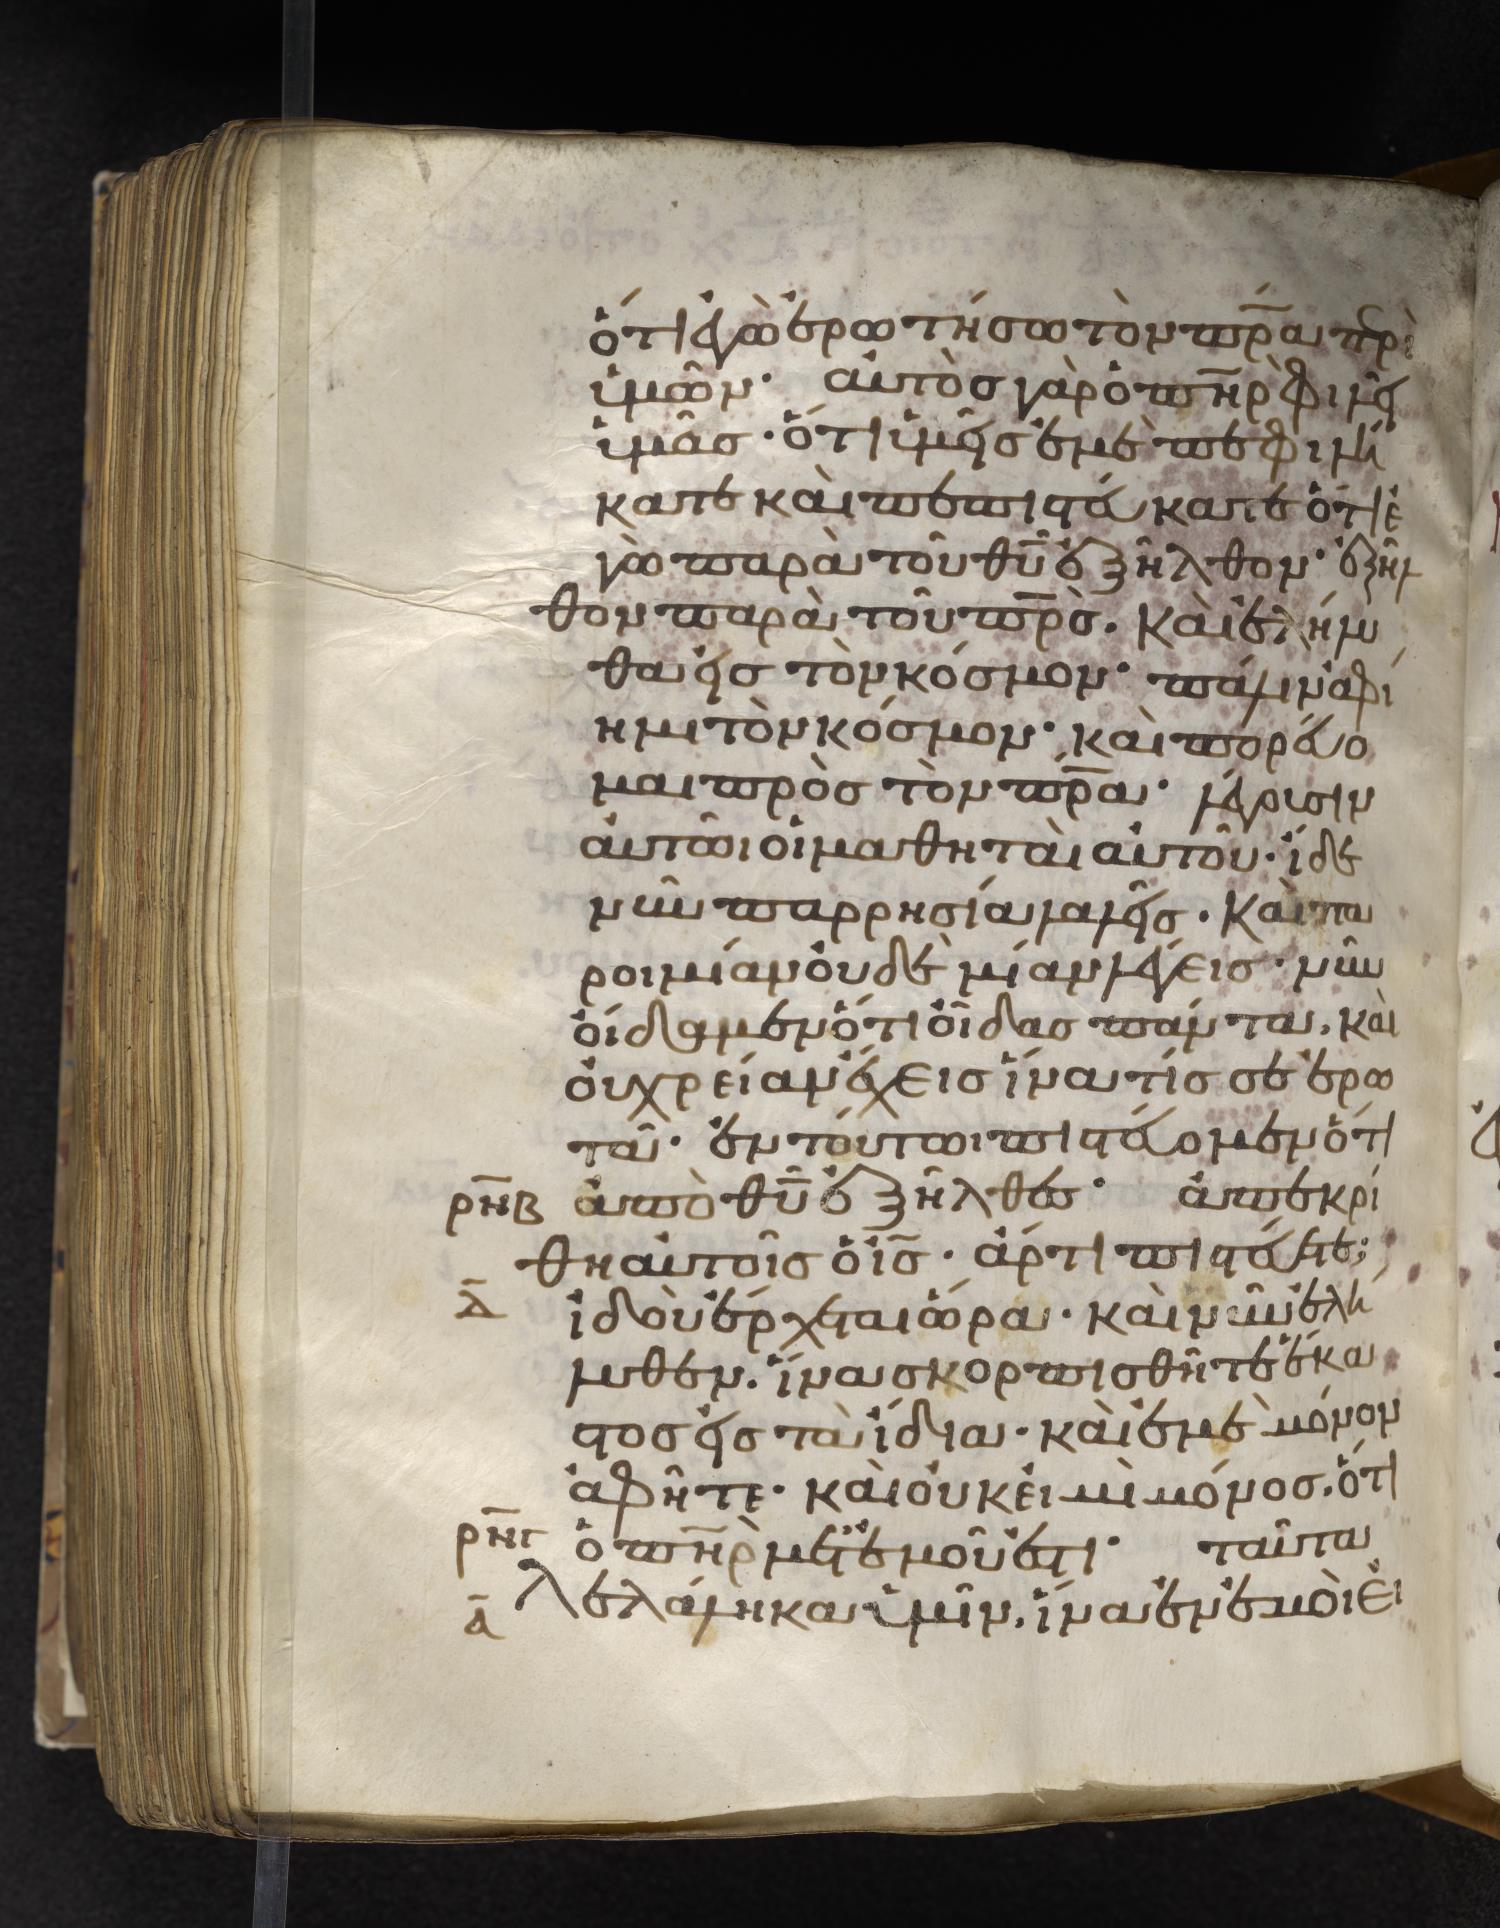 ὅτι ἐγὼ ἐρωτήσω τὸν π̅ρ̅α̅ περὶ
ὑμῶν· αὐτὸς γὰρ ὁ π̅η̅ρ̅ φιλεῖ
ὑμᾶς· ὅτι ὑμεῖς ἐμὲ πεφιλή
κατε καὶ πεπιστεύκατε ὅτι ἐ
γὼ παρὰ τοῦ θ̅υ̅ ἐξῆλθον· ἐξῆλ
θον παρὰ τοῦ π̅ρ̅ς̅. καὶ ἐλήλυ
θα εἰς τὸν κόσμον· πάλιν ἀφί
ημι τὸν κόσμον· καὶ πορεύο
μαι πρὸς τὸν π̅ρ̅α̅· λέγουσιν
αὐτῶι οἱ μαθηταὶ αὐτοῦ· ἴδε
νῦν παρρησία λαλεῖς· καὶ πα
ροιμίαν οὐδὲ μίαν λέγεις· νῦν
οἴδαμεν ὅτι οἶδας πάντα. καὶ
οὐ χρείαν ἔχεις ἵνα τίς σε ἐρω
τᾶ· ἐν τούτωι πιστεύομεν ὅτι
ρ̅ν̅β ἀπὸ θ̅υ̅ ἐξῆλθες· ἀπεκρί
θη αὐτοῖς ὁ ι̅ς̅· ἄρτι πιστεύετε;
δ̅ ἰδοὺ ἔρχεται ὥρα· καὶ νῦν ἐλή
λυθεν. ἵνα σκορπισθῆτε ἕκα
στος εἰς τὰ ἴδια· καὶ ἐμὲ μόνον
ἀφῆτε· καὶ οὐκ εἰμὶ μόνος. ὅτι
ρ̅ν̅γ ὁ π̅η̅ρ̅ μετ' ἐμοῦ ἐστι· ταῦτα
α̅ λελάληκα ὑμῖν. ἵνα ἐν ἐμοὶ εἰ